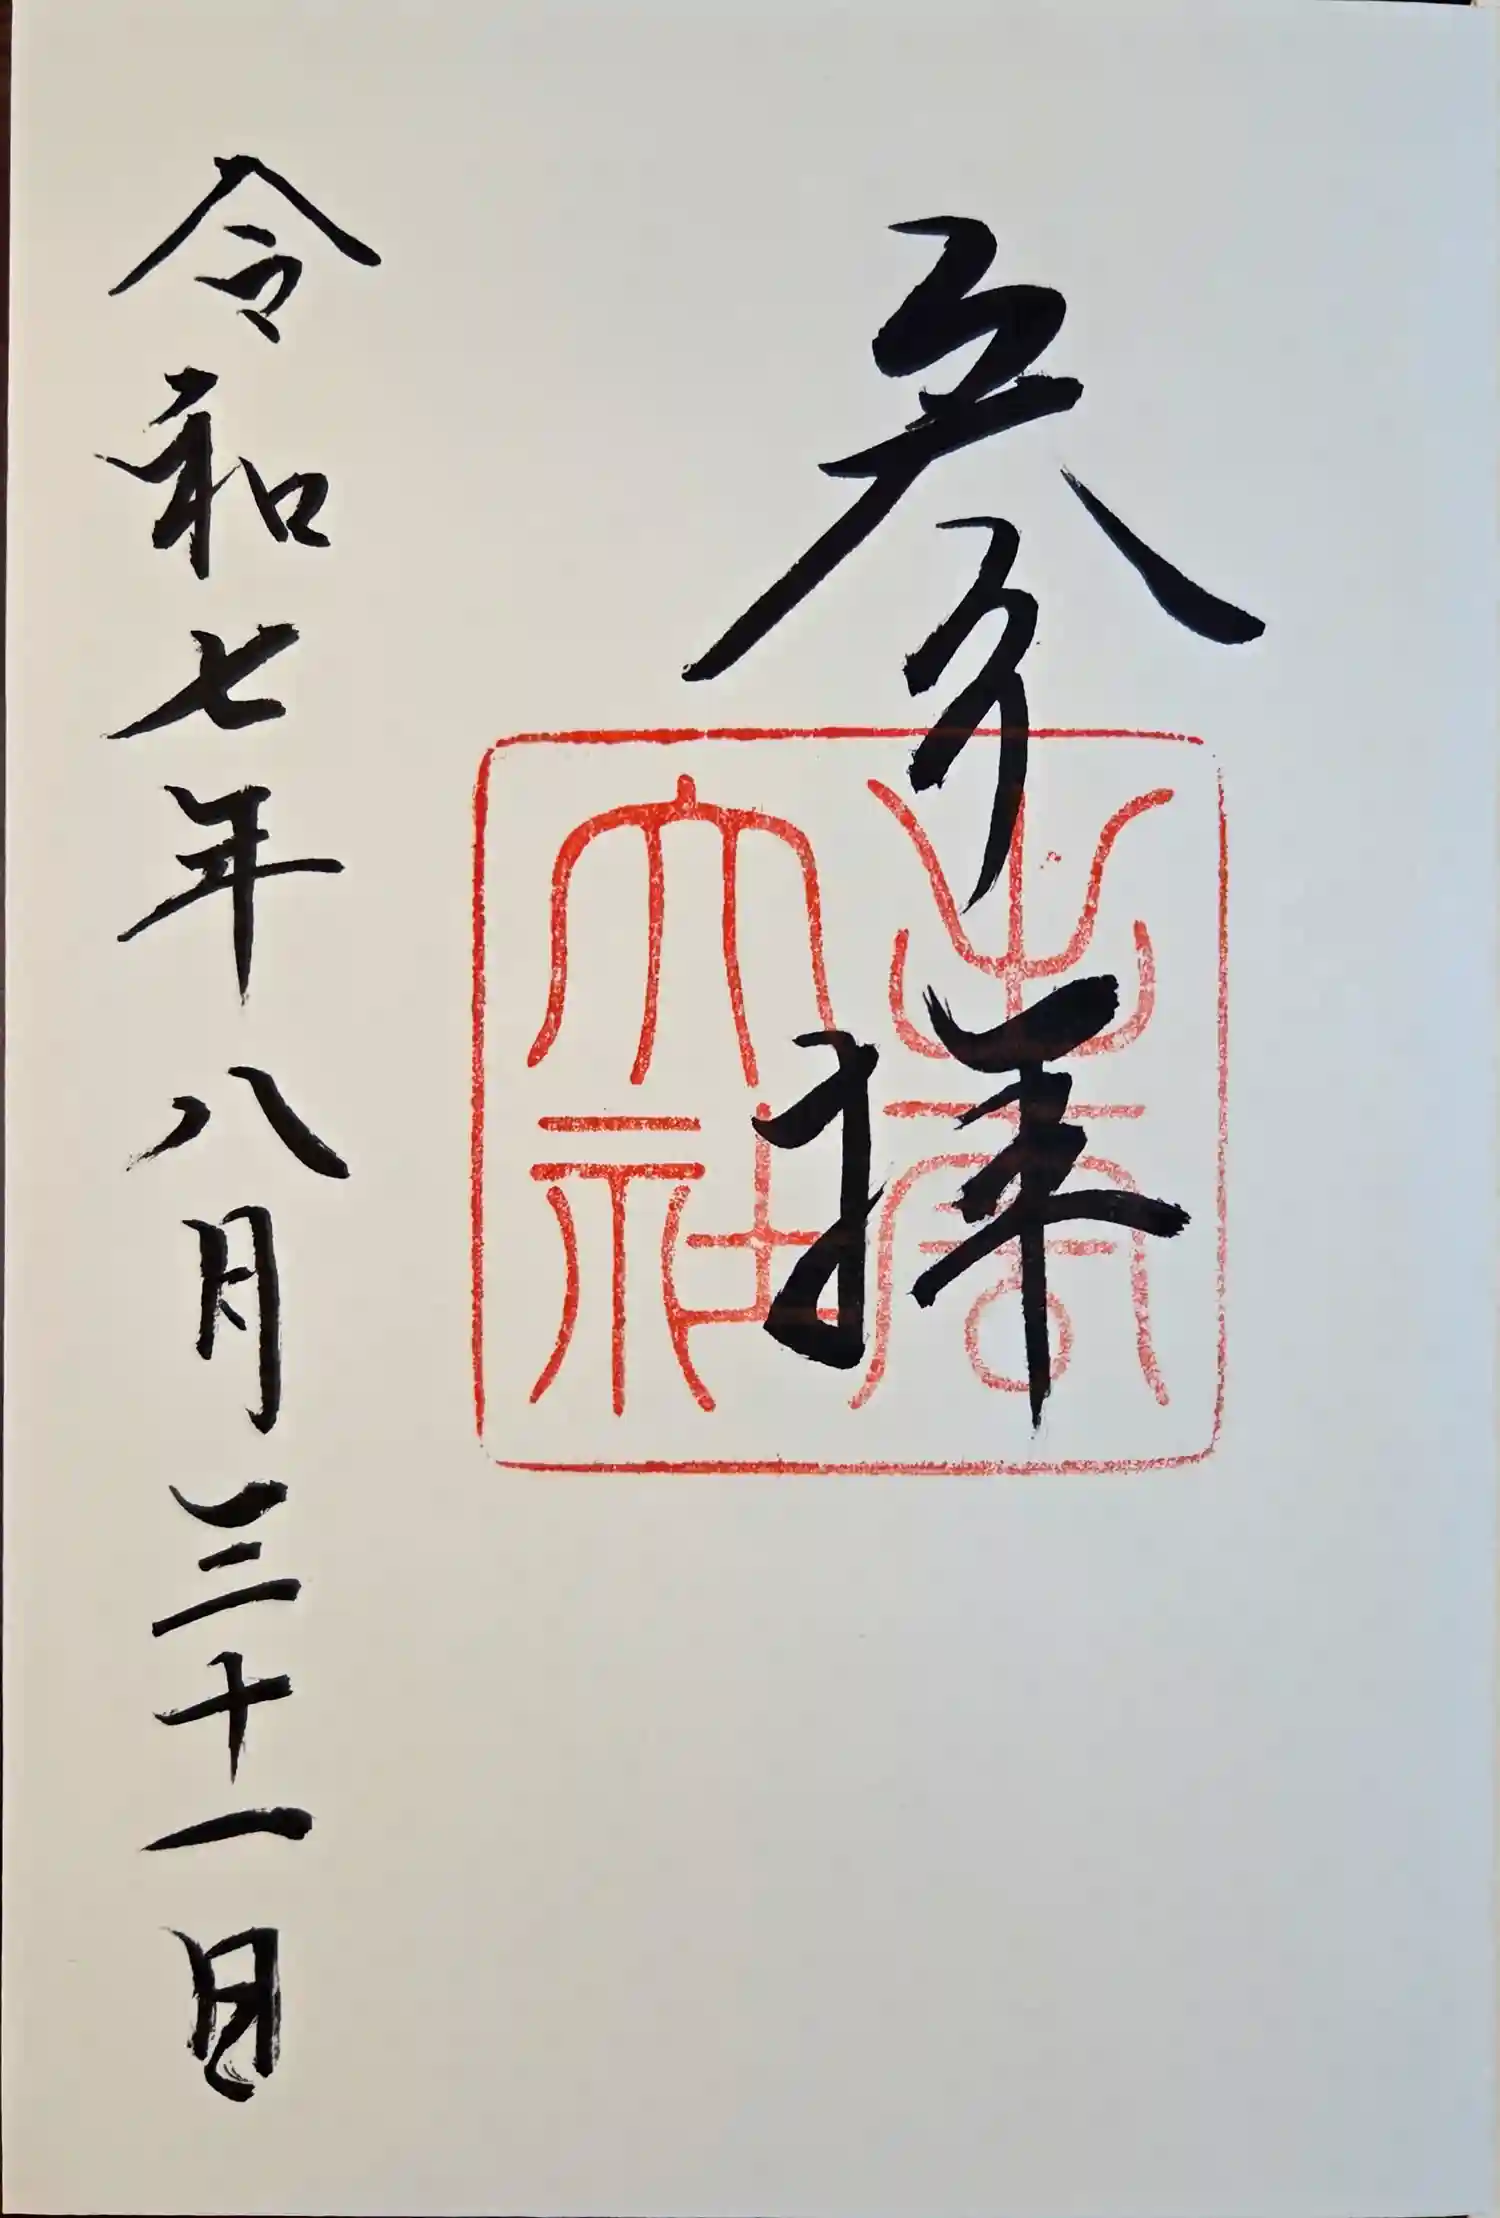 参拝
出雲
大社
令和七年八月三十一日